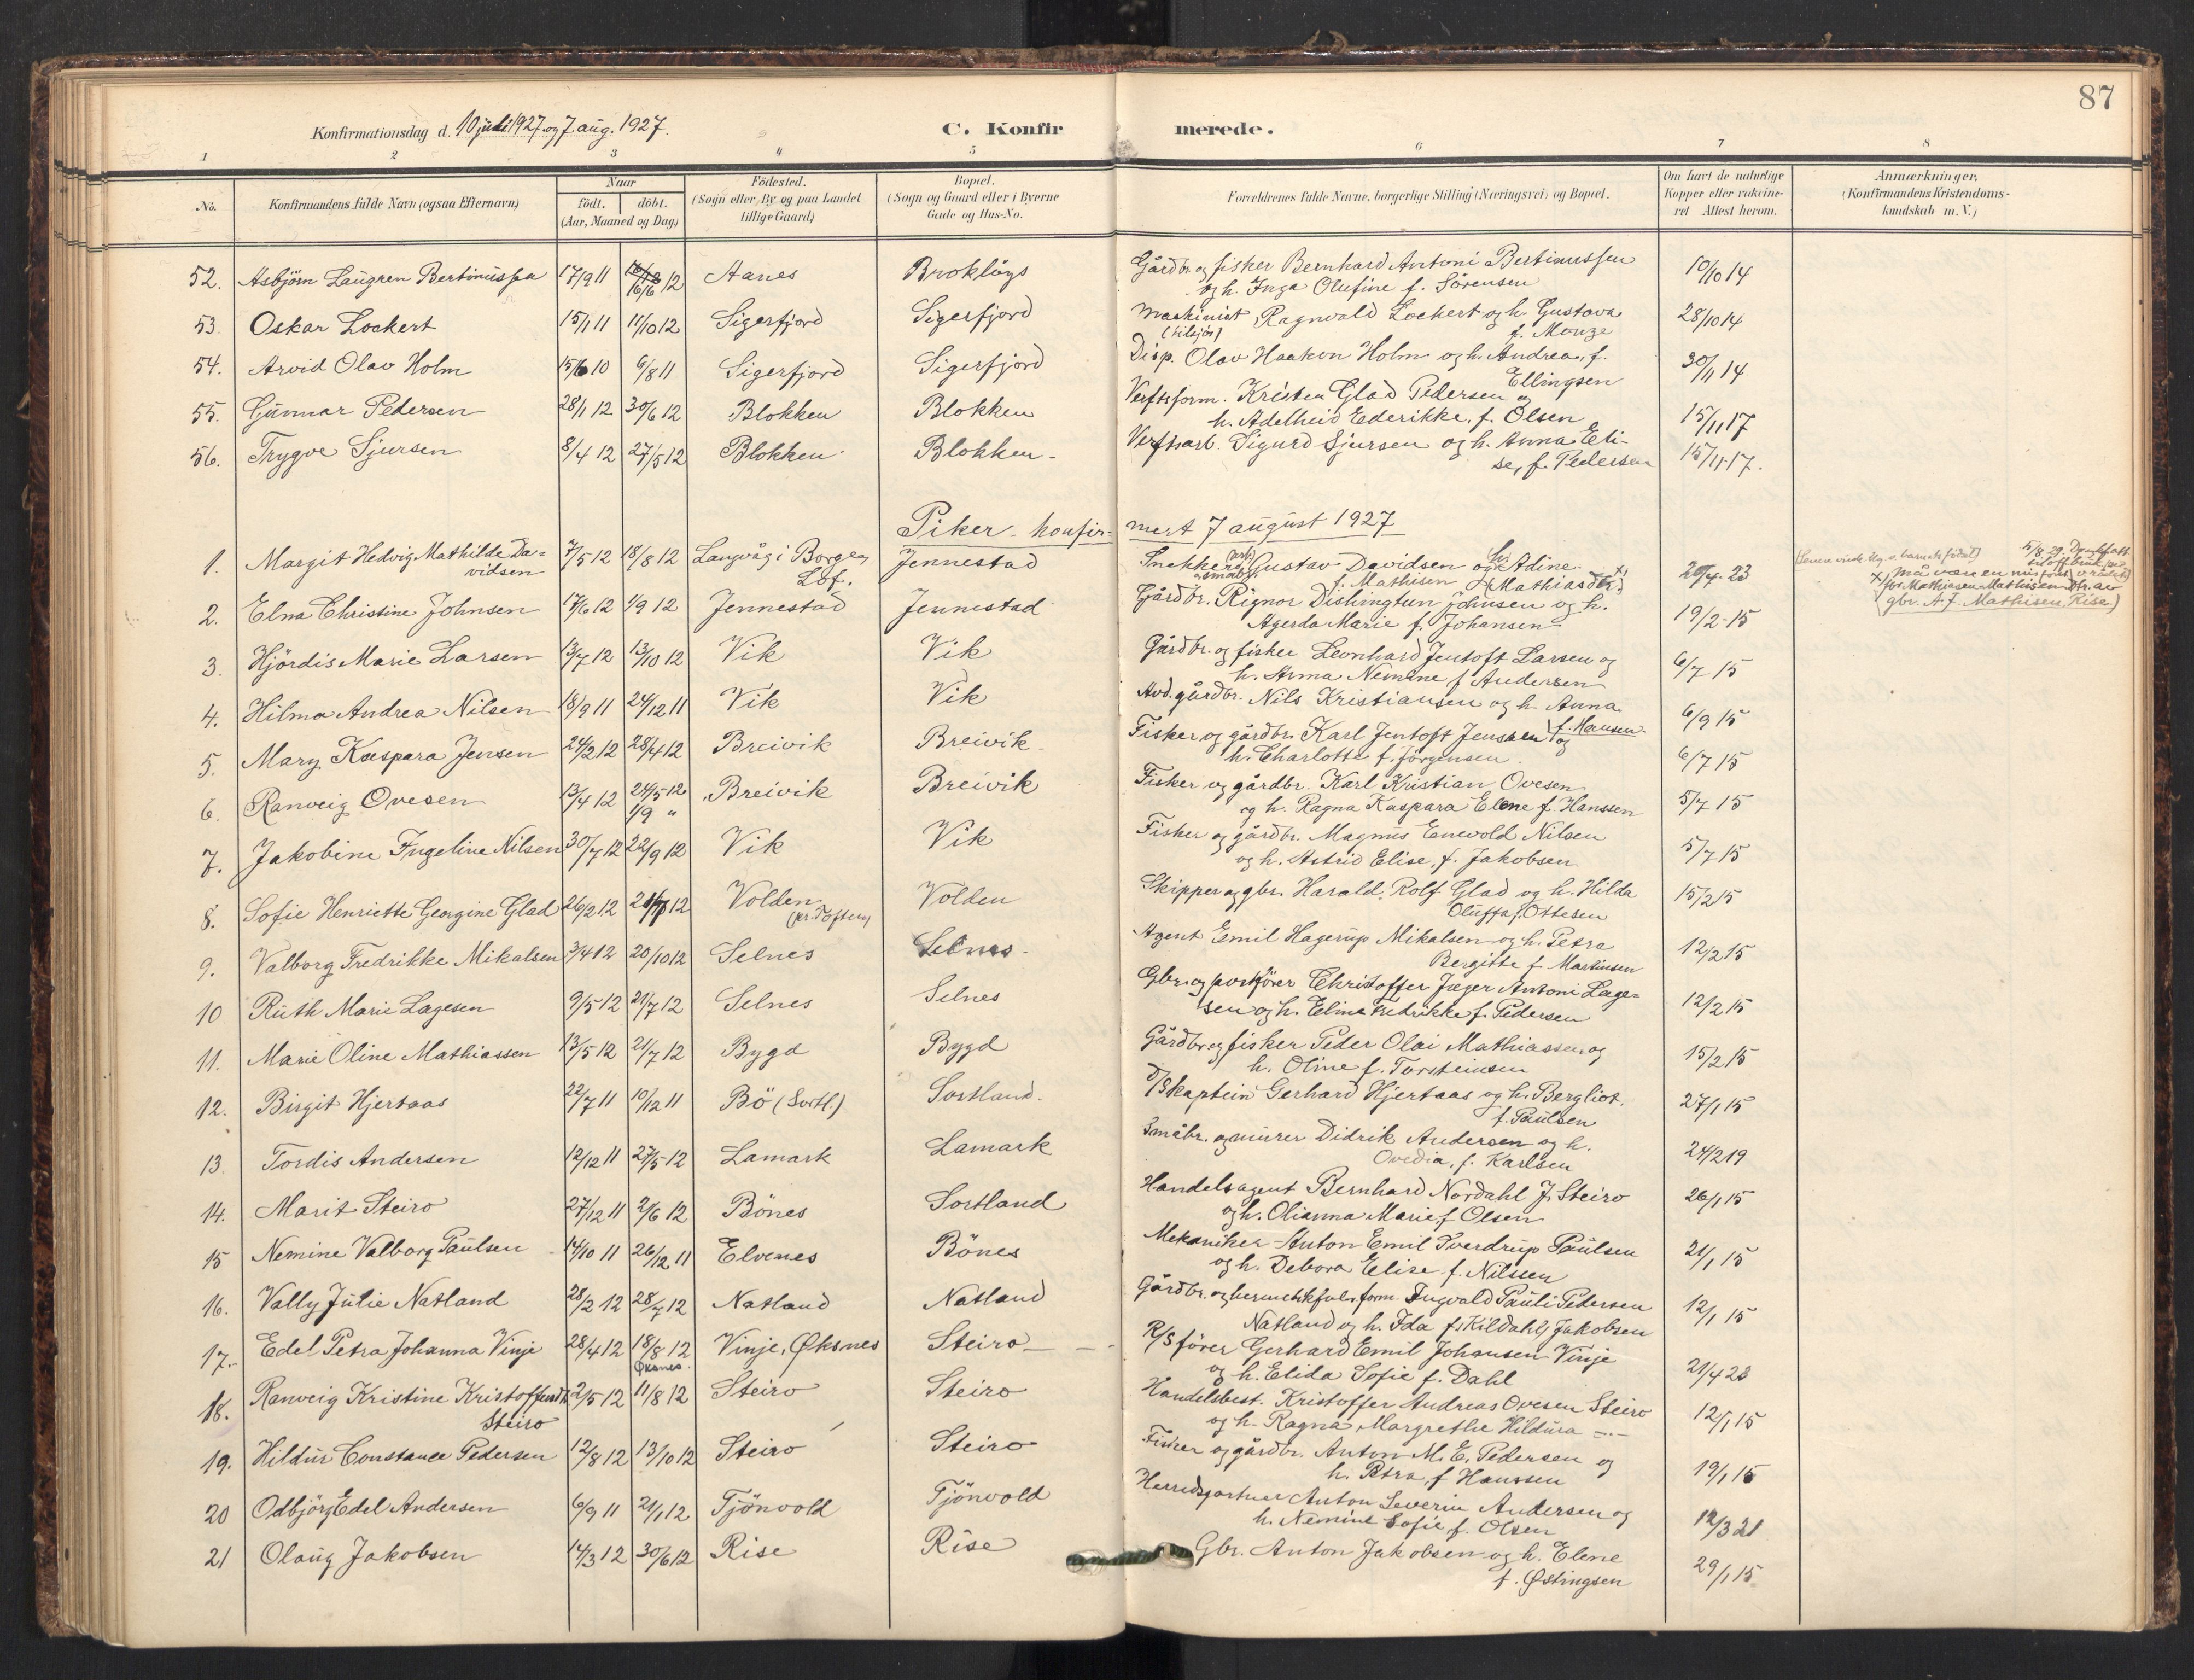 87
Konfirmationsdag d. 10 juli 1927 og 7 aug. 1927.
C. Konfirmerede.
1 2 3 4 5 6 7 8
No.
Konfirmandens fulde Navn (ogsaa Efternavn)
Naar
födt. döbt.
(Aar, Maaned og Dag)
Födested.
(Sogn eller By og paa Landet
tillige Gaard)
Bopæl.
(Sogn og Gaard eller i Byerne
Gade og Hus-No.
Forældrenes fulde Navne, borgerlige Stilling (Næringsvei) og Bopæl.
Om havt de naturlige
Kopper eller vakcine-
ret Attest herom.
Anmærkninger.
(Konfirmandens Kristendoms-
kundskab m. V.)
52. Asbjörn Laugren Bertinussen 17/9 11 16/6 12 Aanes Brokløys Gårdbr. og fisker Bernhard Antoni Bertinussen 10/10 14
og h. Inga Olufine f. Sörensen
53. Oskar Lockert 15/1 11 11/10 12 Sigerfjord Sigerfjord Maskinist Ragnvald Lockert og h. Gustava 28/10 14
(tilsjös) f. Monze
54. Arvid Olav Holm 15/6 10 6/8 11 Sigerfjord Sigerfjord Disp. Olav Haakon Holm og h. Andrea, f. 30/11 14
Ellingsen
55. Gunnar Pedersen 28/1 12 30/6 12 Blokken Blokken Verftsform. Kristen Glad Pedersen og 15/11 17
h. Adelheid Ederikke, f. Olsen
56. Trygve Sjursen 8/4 12 27/5 12 Blokken Blokken Verftsarb. Sigurd Sjursen og h. Anna Eli- 15/11 17.
se, f. Pedersen
Piker konfirmert 7 august 1927
1. Margit Hedvig Mathilde Da- 7/5 12 18/8 12 Langvåg i Borge, Jennestad Snekker (arb) Gustav Davidsen og h. Adine 20/4 23
vidsen Lof. og småbr. f. Mathisen (Mathiasdtr.) x)
må være en
x) for Mathiasen Mathisen dtr. av
gbr. A. J. Mathisen, Rise)
2. Elna Christine Johnsen 17/6 12 1/9 12 Jennestad Jennestad Gårdbr. Rignor Dishingtun Johnsen og h. 19/2 15
Agerda Marie f. Johansen
3. Hjördis Marie Larsen 13/7 12 13/10 12 Vik Vik Gårdbr. og fisker Leonhard Jentoft Larsen og 6/7 15
h. Arma Nemine f. Andersen
4. Hilma Andrea Nilsen 18/9 11 24/12 11 Vik Vik Avd. gårdbr. Nils Kristiansen og h. Anna 6/9 15
f. Hansen.
5. Mary Kaspara Jensen 24/2 12 28/4 12 Breivik Breivik Fisker og gårdbr. Karl Jentoft Jenssen og 6/7 15
h. Charlotte f. Jörgensen.
6. Ranveig Ovesen 13/4 12 24/5 12 Breivik Breivik Fisker og gårdbr. Karl Kristian Ovesen 5/7 15
1/9 " og h. Ragna Kaspara Elene f. Hanssen
7. Jakobine Ingeline Nilsen 30/7 12 22/9 12 Vik Vik Fisker og gårdbr. Magnus Enevold Nilsen 5/7 15
og h. Astrid Elise, f. Jakobsen
8. Sofie Henriette Georgine Glad 26/2 12 21/7 12 Volden Volden Skipper og gbr. Harald Rolf Glad og h. Hilda 15/2 15
(pr. Toften) Oluffa f. Ottesen
9. Valborg Fredrikke Mikalsen 3/4 12 20/10 12 Selnes Selnes Agent Emil Hagerup Mikalsen og h. Petra 12/2 15
Bergitte f. Martinsen
10 Ruth Marie Lagesen 9/5 12 21/7 12 Selnes Selnes Gbr. og postförer Christoffer Jæger Antoni Lage- 12/2 15
sen og h. Eline Fredrikke f. Pedersen
11. Marie Oline Mathiassen 13/5 12 21/7 12 Bygd Bygd Gårdbr. og fisker Peder Olai Mathiassen og 15/2 15
h. Oline f. Torsteinsen
12. Birgit Hjertaas 22/7 11 10/12 11 Bö (Sortl.) Sortland. D/S kaptein Gerhard Hjertaas og h. Bergliot. 27/1 15
f. Paulsen
13. Tordis Andersen 12/12 11 27/5 12 Lamark Lamark Småbr. og murer Didrik Andersen og h. 24/2 19
Ovedia, f. Karlsen
14. Marit Steiro 27/12 11 2/6 12 Bönes Sortland Handelsagent Bernhard Nordahl J. Steiro 26/1 15
og h. Olianna Marie f. Olsen
15 Nemine Valborg Paulsen 14/10 11 26/12 11 Elvenes Bönes Mekaniker Anton Emil Sverdrup Paulsen 21/1 15
og h. Debora Elise f. Nilssen
16. Vally Julie Natland 28/2 12 28/7 12 Natland Natland Gårdbr. og hermetikfabr. form. Ingvald Pauli Pedersen 12/1 15
Natland og h. Ida f. (Kildahl) Jakobsen
17. Edel Petra Johanna Vinje 28/4 12 18/8 12 Vinje, Øksnes Steiro R/S förer Gerhard Emil Johansen Vinje 21/4 23
Øksnes. og h. Elida Sofie f. Dahl
18. Ranveig Kristine Kristoffersdtr. 2/5 12 11/8 12 Steiro Steiro Handelsbest. Kristoffer Andreas Ovesen Steiro 12/1 15
Steiro og h. Ragna Margrethe Hildura
19. Hildur Constance Pedersen 12/8 12 13/10 12 Steiro Steiro Fisker og gårdbr. Anton M. E. Pedersen og 19/1 15
h. Petra, f. Hanssen
20 Odbjörg Edel Andersen 6/9 11 21/1 12 Tjönvold Tjönvold Herredsgartner Anton Severin Andersen og 12/3 21
h. Nemine Sofie f. Olsen
21 Olaug Jakobsen 14/3 12 30/6 12 Rise Rise Gbr. Anton Jakobsen og h. Elene 29/1 15
f. Østingsen